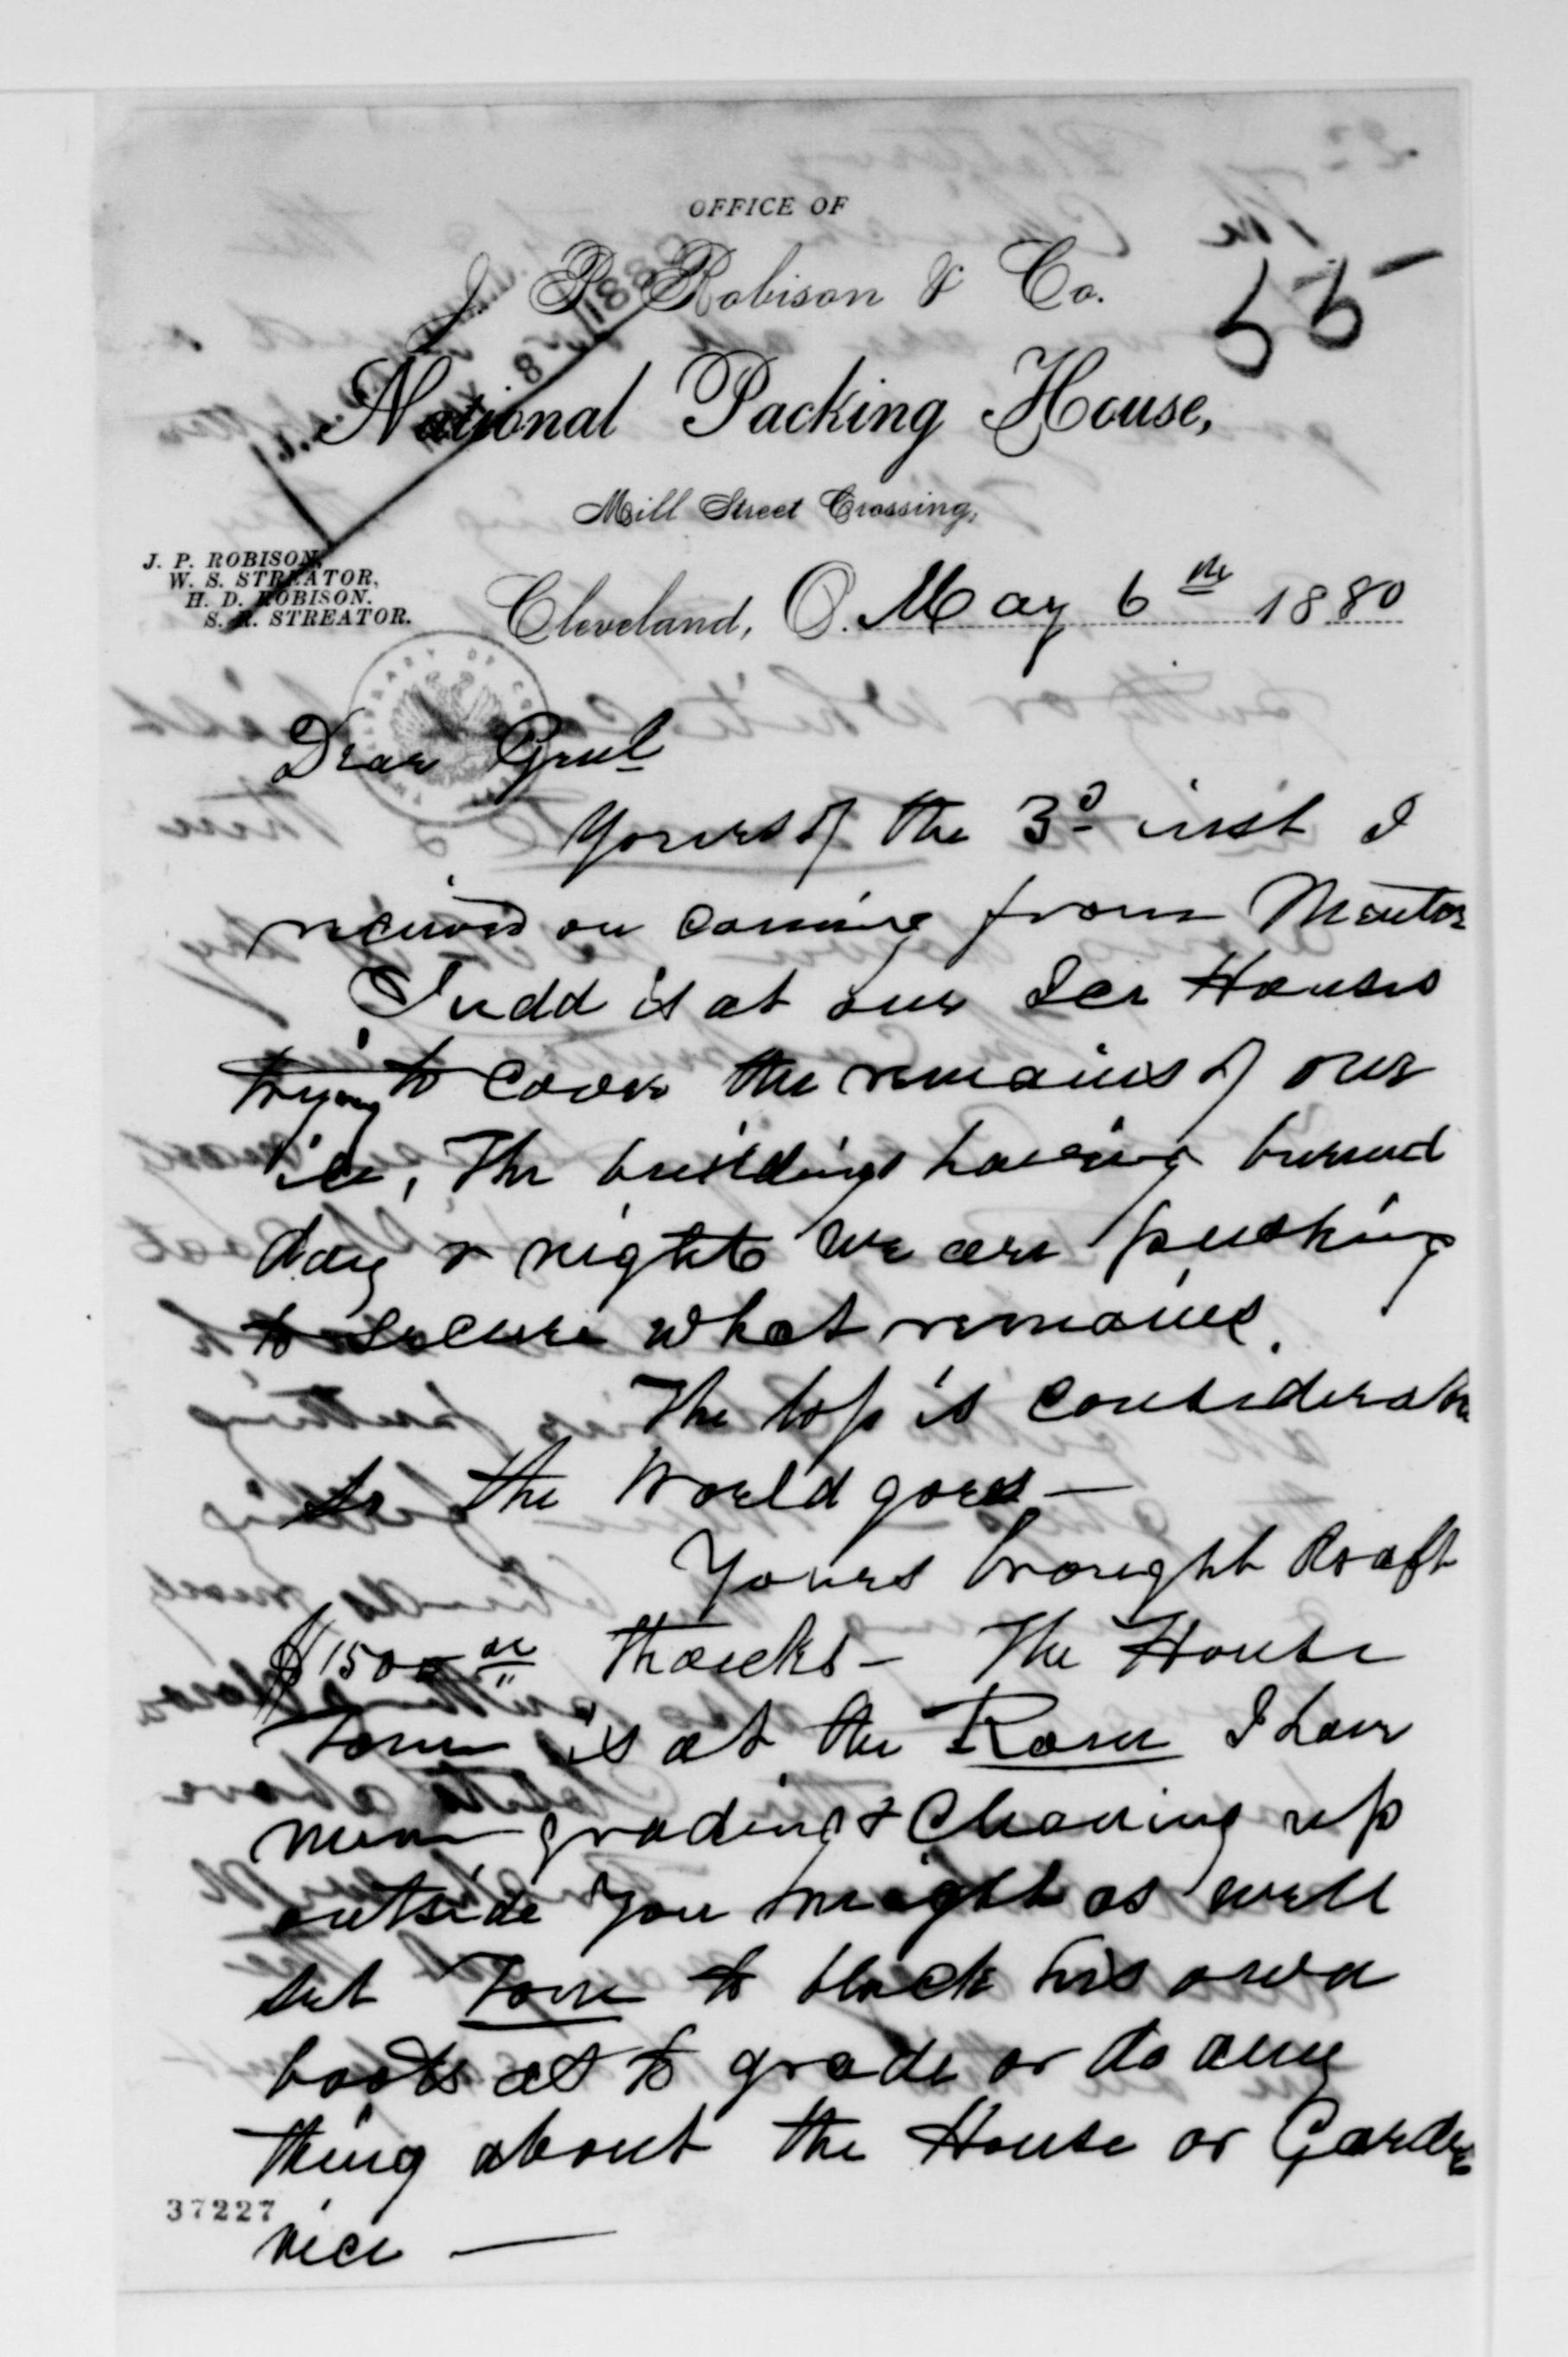 OFFICE OF
J. P. Robison & Co.
55
National Packing House,
Mill Street Crossing,
J. P. ROBISON,
W. S. STREATOR,
H. D. ROBISON.
S. R. STREATOR.
Cleveland, O. May 6th 1880
Dear Genl
Yours of the 3d inst I
received on coming from Mentor
Judd is at our Ice Houses
trying to cover the remains of our
ice, The buildings having burned
day & night we are pushing
to secure what remains.
The loss is considerable
So the World goes —
Yours brought draft
$1500 00 thanks — The House
Tom is at the Farm I have
men grading & Cleaning up
outside You might as well
set Tom to black his own
boots as to grade or do any
thing about the House or Garden
nice —
37227